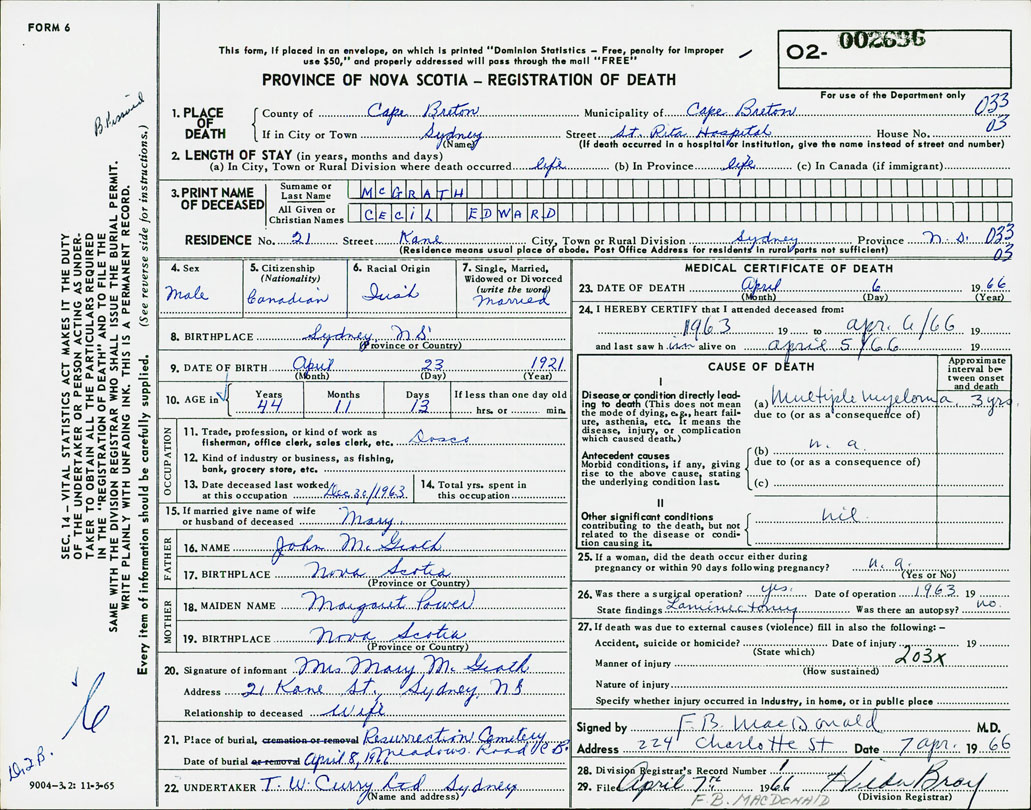 FORM 6
This form, if placed in an envelope, on which is printed "Dominion Statistics – Free, penalty for improper
use $50," and properly addressed will pass through the mail "FREE"
O2- 002696
For use of the Department only
PROVINCE OF NOVA SCOTIA – REGISTRATION OF DEATH
SEC. 14 – VITAL STATISTICS ACT MAKES IT THE DUTY
OF THE UNDERTAKER OR PERSON ACTING AS UNDER-
TAKER TO OBTAIN ALL THE PARTICULARS REQUIRED
IN THE "REGISTRATION OF DEATH" AND TO FILE THE
SAME WITH THE DIVISION REGISTRAR WHO SHALL ISSUE THE BURIAL PERMIT.
WRITE PLAINLY WITH UNFADING INK. THIS IS A PERMANENT RECORD.
Every item of information should be carefully supplied. (See reverse side for instructions.)
1. PLACE OF DEATH
County of Cape Breton Municipality of Cape Breton 033
If in City or Town Sydney Street St. Rita Hospital House No. 03
(Name) (If death occurred in a hospital or institution, give the name instead of street and number)
2. LENGTH OF STAY (in years, months and days)
(a) In City, Town or Rural Division where death occurred life (b) In Province life (c) In Canada (if immigrant)
3. PRINT NAME OF DECEASED
Surname or Last Name McGRATH
All Given or Christian Names CECIL EDWARD
RESIDENCE No. 21 Street Kane City, Town or Rural Division Sydney Province N.S. 033
(Residence means usual place of abode. Post Office Address for residents in rural parts not sufficient) 03
4. Sex Male
5. Citizenship (Nationality) Canadian
6. Racial Origin Irish
7. Single, Married, Widowed or Divorced (write the word) Married
8. BIRTHPLACE Sydney, NS
(Province or Country)
9. DATE OF BIRTH April 23 1921
(Month) (Day) (Year)
10. AGE in Years 44 Months 11 Days 13 If less than one day old hrs. or min.
OCCUPATION
11. Trade, profession, or kind of work as fisherman, office clerk, sales clerk, etc. Dosco
12. Kind of industry or business, as fishing, bank, grocery store, etc.
13. Date deceased last worked at this occupation Dec 30/1963
14. Total yrs. spent in this occupation
15. If married give name of wife or husband of deceased Mary
FATHER
16. NAME John McGrath
17. BIRTHPLACE Nova Scotia
(Province or Country)
MOTHER
18. MAIDEN NAME Margaret Power
19. BIRTHPLACE Nova Scotia
(Province or Country)
20. Signature of informant Mrs Mary McGrath
Address 21 Kane St., Sydney, NS
Relationship to deceased Wife
21. Place of burial, cremation or removal Resurrection Cemetery
Meadows Road C.B.
Date of burial or removal April 8, 1966
22. UNDERTAKER T. W. Curry Ltd Sydney
(Name and address)
9004–3.2: 11-3-65
MEDICAL CERTIFICATE OF DEATH
23. DATE OF DEATH April 6 1966
(Month) (Day) (Year)
24. I HEREBY CERTIFY that I attended deceased from:
1963 19 to apr. 6/66 19
and last saw him alive on april 5/66 19
CAUSE OF DEATH
Approximate interval between onset and death
I
Disease or condition directly leading to death (This does not mean the mode of dying, e.g., heart failure, asthenia, etc. It means the disease, injury, or complication which caused death.)
(a) Multiple myeloma 3 yrs.
due to (or as a consequence of)
Antecedent causes
Morbid conditions, if any, giving rise to the above cause, stating the underlying condition last.
(b) n. a.
due to (or as a consequence of)
(c)
II
Other significant conditions
contributing to the death, but not related to the disease or condition causing it.
nil.
25. If a woman, did the death occur either during pregnancy or within 90 days following pregnancy? n. a.
(Yes or No)
26. Was there a surgical operation? yes. Date of operation 1963 19
State findings Laminectomy Was there an autopsy? no.
27. If death was due to external causes (violence) fill in also the following: –
Accident, suicide or homicide? Date of injury 19
(State which) 203X
Manner of injury
(How sustained)
Nature of injury
Specify whether injury occurred in Industry, in home, or in public place
Signed by F. B. MacDonald M.D.
Address 224 Charlotte St Date 7 apr. 1966
28. Division Registrar's Record Number
29. Filed April 7th 1966 Hilda Bray
(Division Registrar)
F. B. MACDONALD